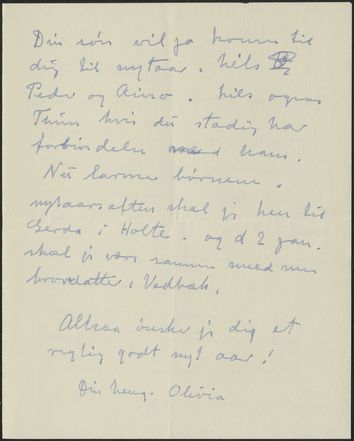 Din søn vil jo komme til
dig til nytaar. hils
Peder og Aino. hils ogsaa
Thim hvis du stadig har
forbindelse med ham.
Nu larmer børnene.
nytaarsaften skal jeg hen til
Gerda i Holte. og d 2 jan.
skal jeg være sammen med min
brordatter i Vedbæk.
Altsaa ønsker jeg dig et
rigtig godt nyt aar!
Din heng. Olivia